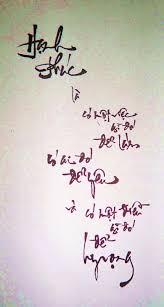 Hạnh
phúc
là
có một việc
gì đó
để làm
có ai đó
để yêu
và
có một điều
gì đó
để
hy vọng